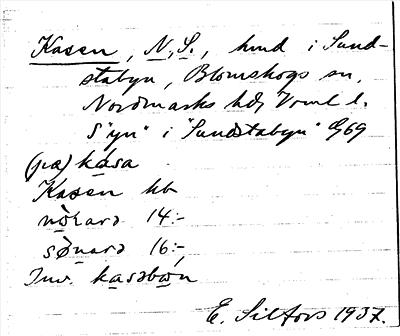 Kasen, N., S., hmd i Sund-
stabyn, Blomskogs sn,
Nordmarks hd, Vrml l.
S "yn" i "Sundstabyn" G69
(pa) kasa
Kasen hb
14:-
16:-
Inv.
E. Silfors 1937.